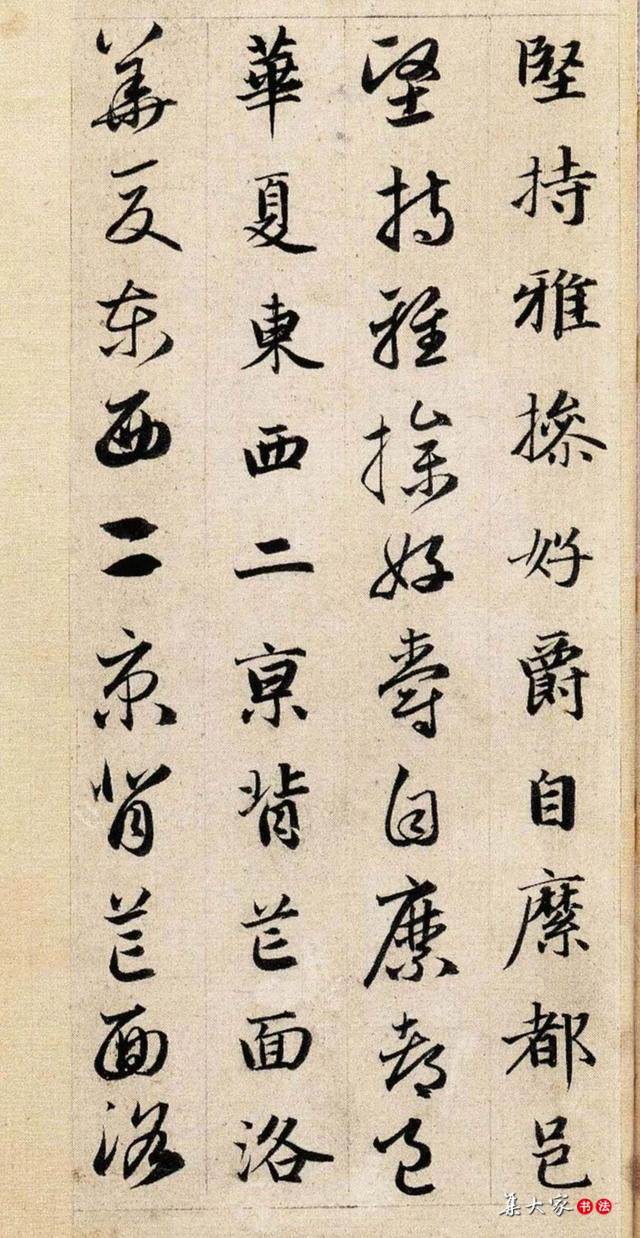 堅持雅操好爵自縻都邑
堅持雅操好爵自縻都邑
華夏東西二亰背芒面洛
華夏東西二京背芒面洛
集大家书法